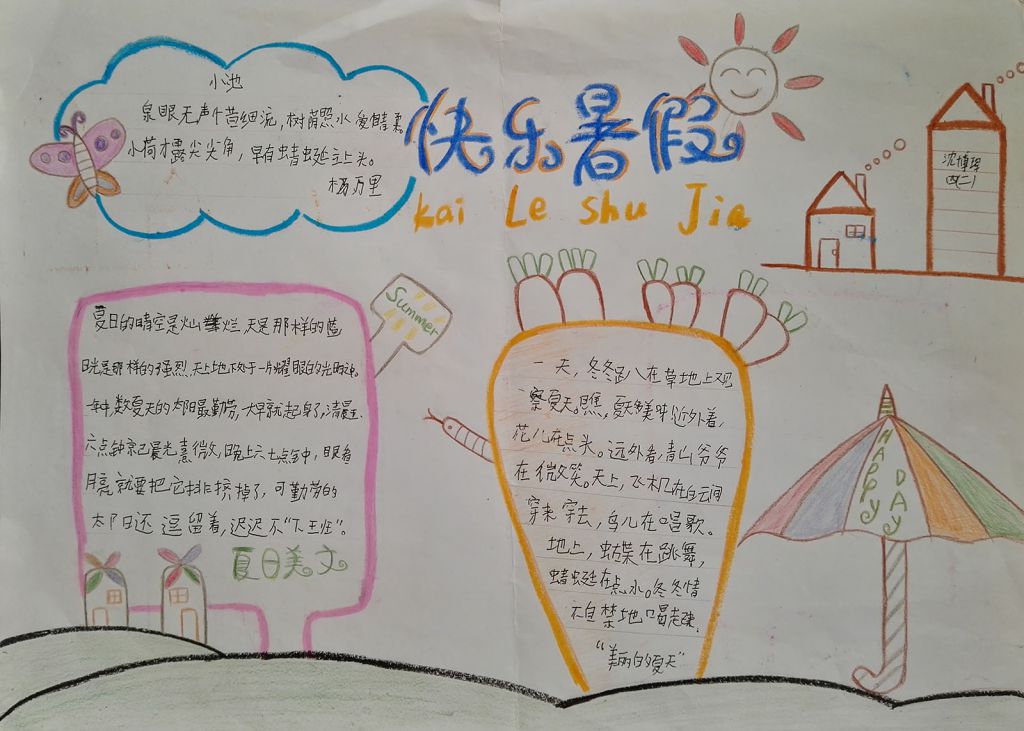 小池
泉眼无声惜细流,树荫照水爱晴柔。
小荷才露尖尖角,早有蜻蜓立上头。
杨万里
快乐暑假
kai Le shu Jia
四(二)
Summer
夏日的晴空是灿烂,天是那样的蓝
日光是那样的强烈,天上地下处于一片耀眼的光明之中。
一年中,数夏天的太阳最勤劳,大早就起身了,清晨
六点钟就已晨光熹微,晚上六七点钟,眼看
月亮就要把它排挤掉了,可勤劳的
太阳还逗留着,迟迟不“下班”。
夏日美文
一天,冬冬趴在草地上观
察夏天。瞧,夏天多美呀!近处看,
花儿在点头。远处看,青山爷爷
在微笑。天上,飞机在白云间
穿来穿去,鸟儿在唱歌。
地上,蝴蝶在跳舞,
蜻蜓在点水。冬冬情
不自禁地唱起来:
“美丽的夏天”
HAPPY
DAY